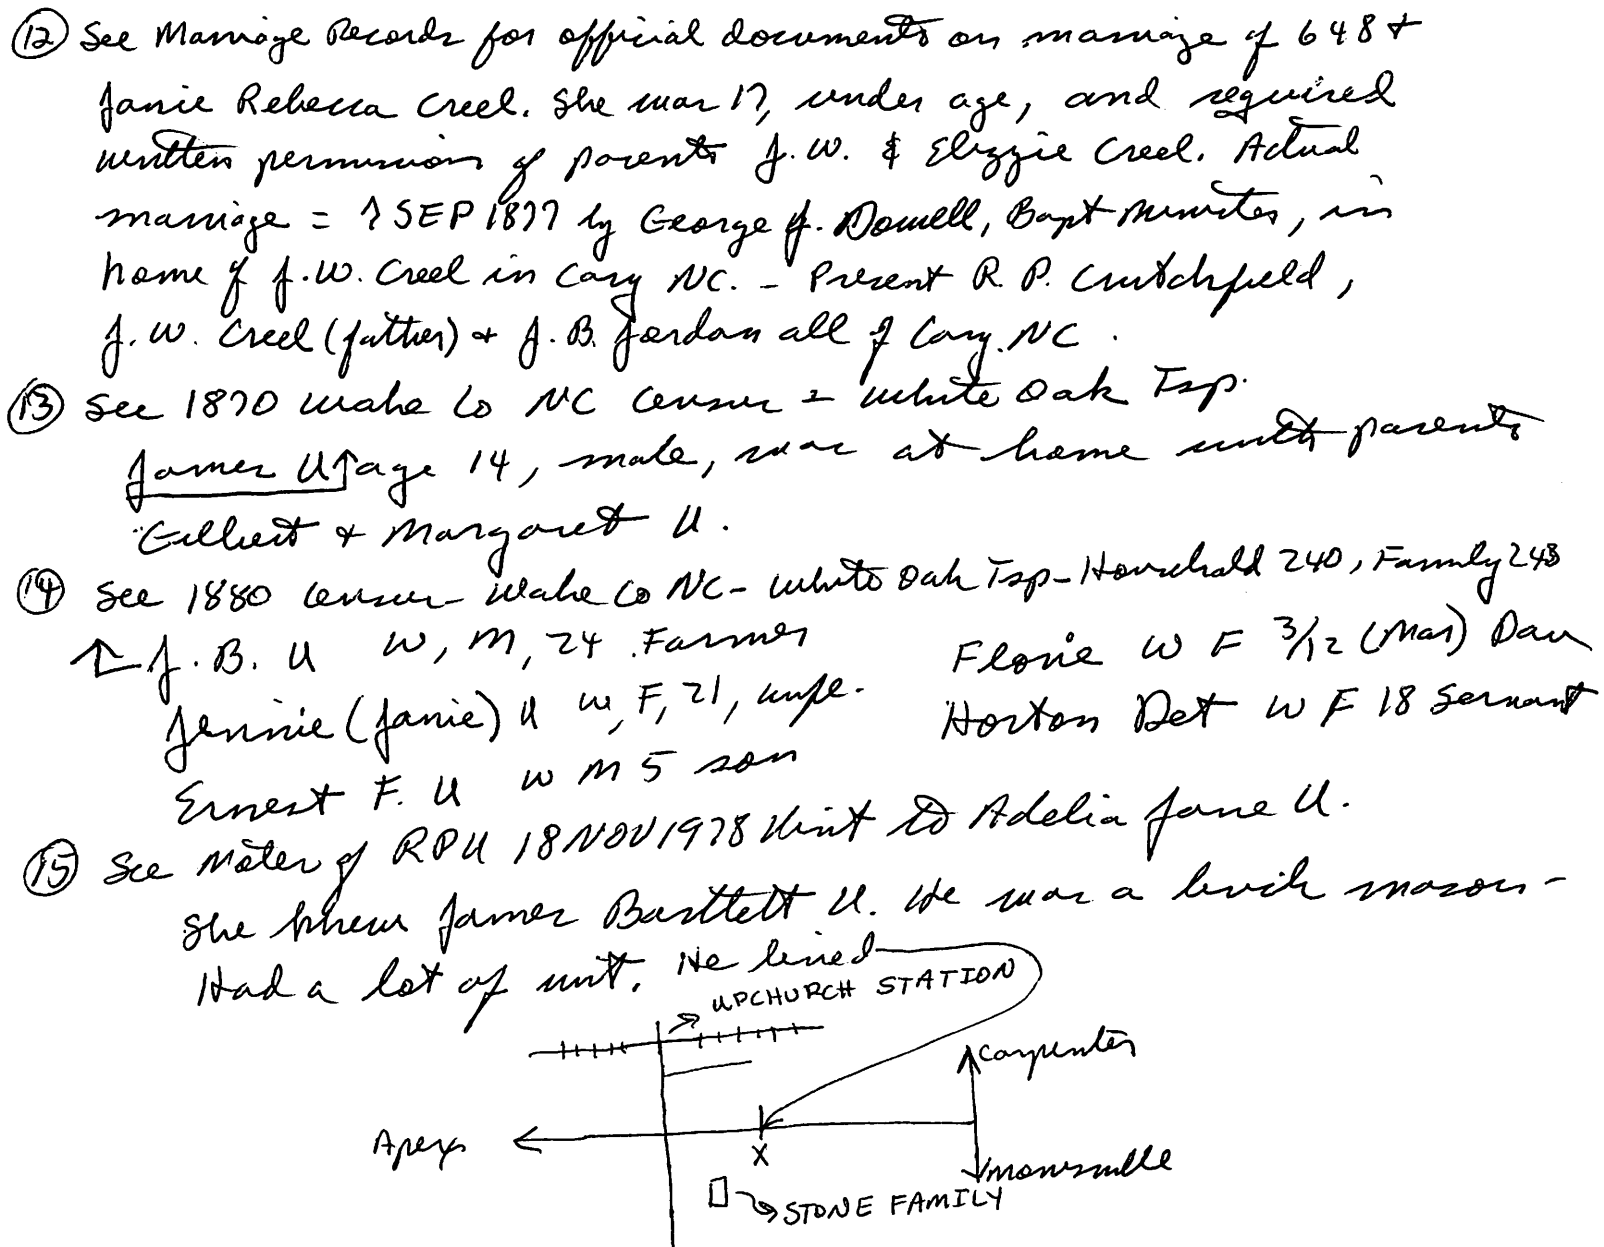 (12) See Marriage Records for official documents on marriage of 648 +
Janie Rebecca Creel. She was 17, under age, and required
written permission of parents J.W. & Elizzie Creel. Actual
marriage = 7 SEP 1877 by George J. Dowell, Bapt Minister, in
home of J.W. Creel in Cary NC. - Present R. P. Crutchfield,
J. W. Creel (father) + J. B. Jordan all of Cary, NC.
(13) See 1870 Wake Co NC Census = White Oak Tsp.
James U ↑ age 14, male, was at home with parents
Gilbert + Margaret U.
(14) See 1880 Census - Wake Co NC - White Oak Tsp - Household 240, Family 243
↑ J. B. U W, M, 24 Farmer
Jennie (Janie) U W, F, 21, wife.
Ernest F. U W M 5 son
Florie W F 3/12 (Mar) Dau
Horton Bet W F 18 Servant
(15) See Notes of RPU 18 NOV 1978 Visit to Adelia Jane U.
She knew James Bartlett U. He was a brick mason -
Had a lot of wit. He lived
UPCHURCH STATION
Carpenter
Apex
X
Morrisville
STONE FAMILY